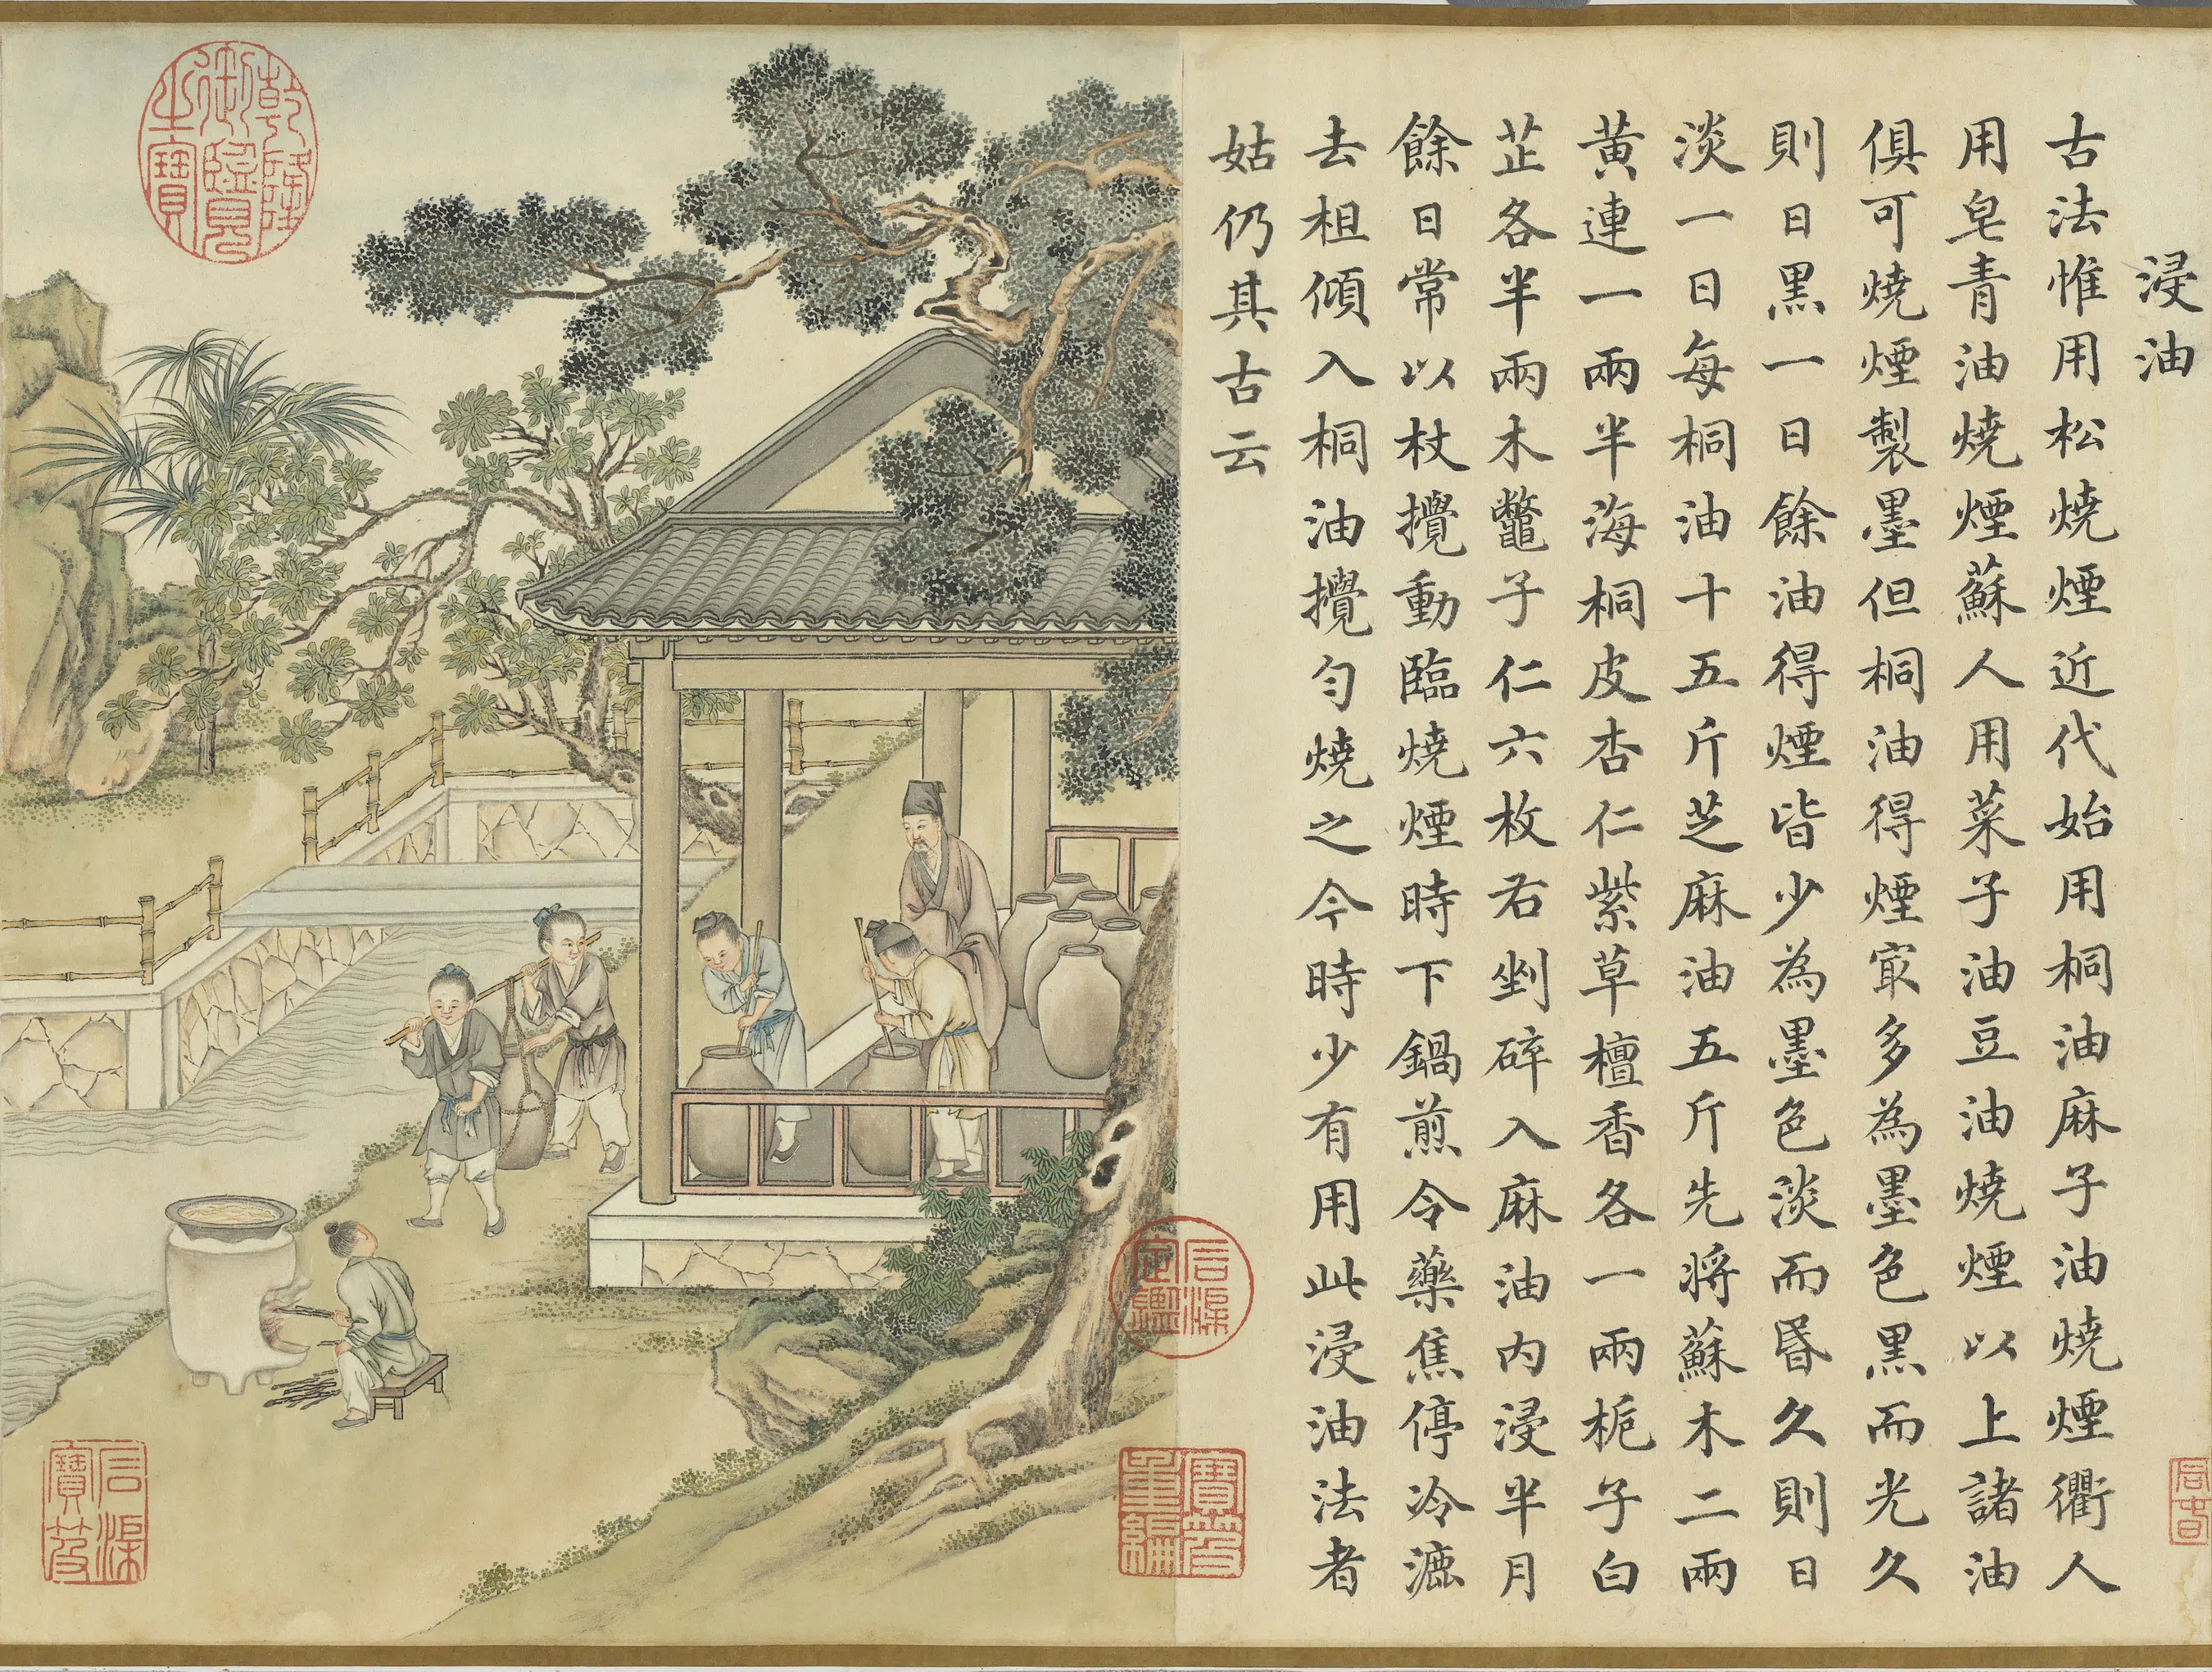 浸油
古法惟用松燒煙近代始用桐油麻子油燒煙衢人
用皂青油燒煙蘇人用菜子油豆油燒煙以上諸油
俱可燒煙製墨但桐油得煙㝡多為墨色黑而光久
則日黑一日餘油得煙皆少為墨色淡而昬久則日
淡一日每桐油十五斤芝麻油五斤先將蘇木二兩
黃連一兩半海桐皮杏仁紫草檀香各一兩梔子白
芷各半兩木鼈子仁六枚右剉碎入麻油內浸半月
餘日常以杖攪動臨燒煙時下鍋煎令藥焦停冷漉
去柤傾入桐油攪勻燒之今時少有用此浸油法者
姑仍其古云
乾隆御覽之寶
石渠定鑑
寶笈重編
石渠寶笈